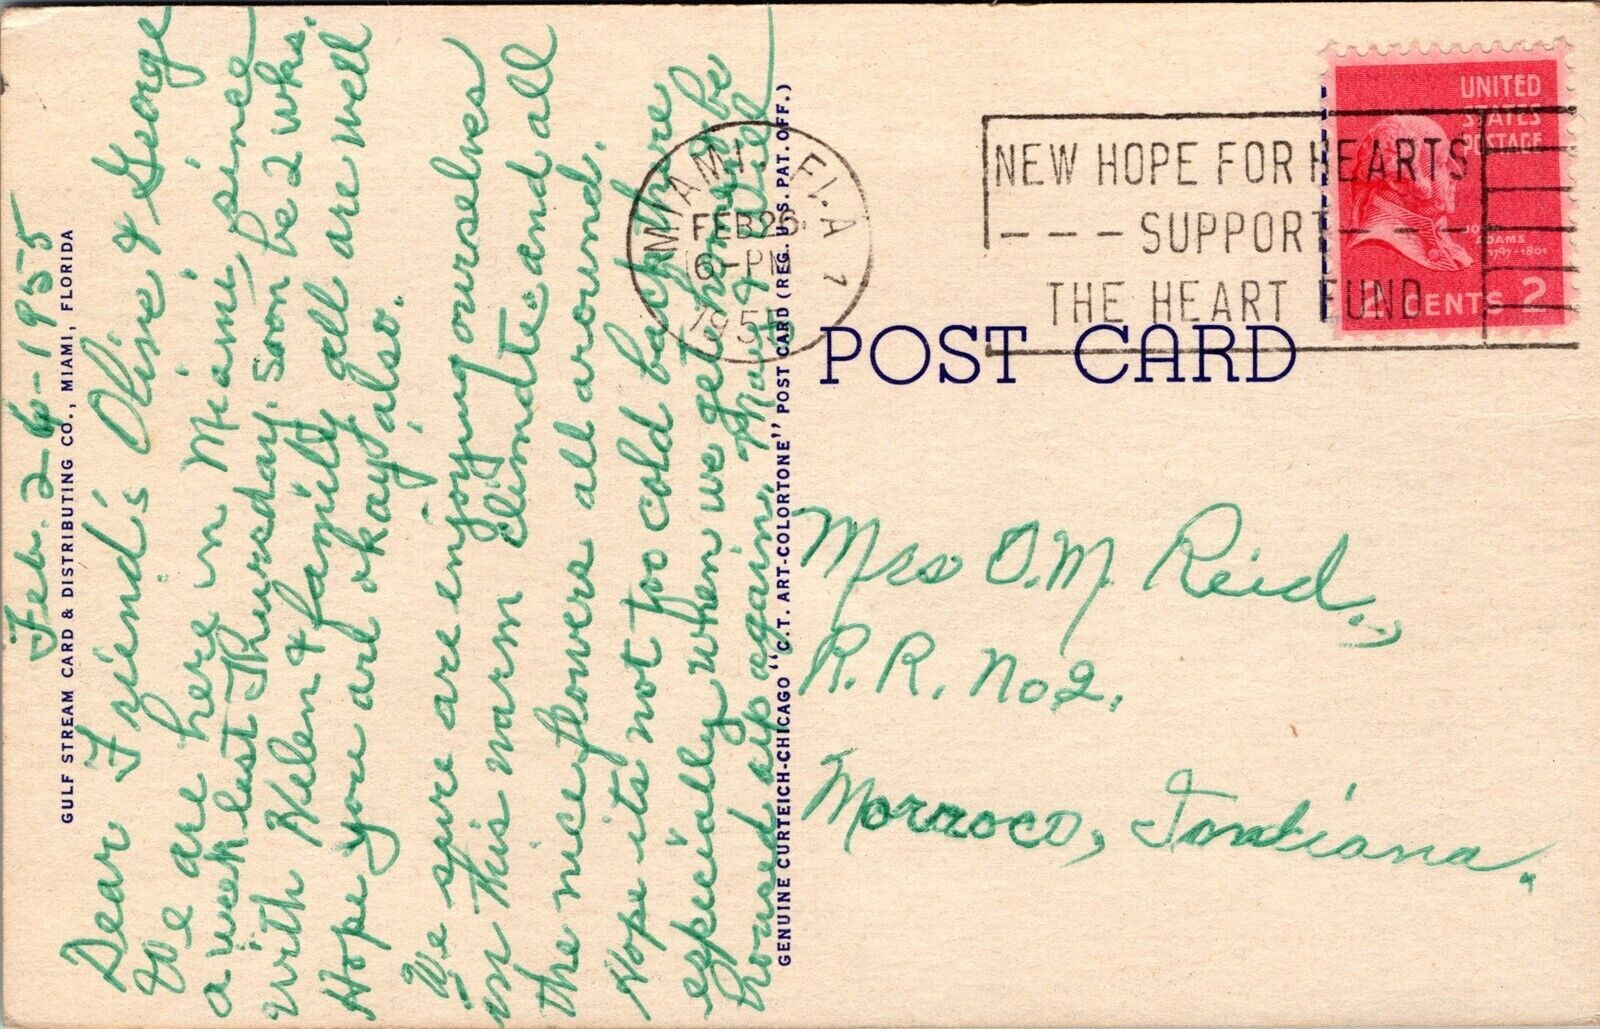 Feb. 26-1955
Dear Friend's Oline & George
We are here in Miami since
a week last Thursday. soon be 2 wks.
with Helen & family all are well
Hope you are okay also.
We sure are enjoying ourselves
in this warm climate and all
the nice flowers all around.
Hope its not too cold back there
especially when we get home be
housed up again.
GULF STREAM CARD & DISTRIBUTING CO., MIAMI, FLORIDA
GENUINE CURTEICH-CHICAGO "C.T. ART-COLORTONE" POST CARD (REG. U.S. PAT. OFF.)
MIAMI, FLA
FEB 26
6-PM
1955
1
NEW HOPE FOR HEARTS
---SUPPORT---
THE HEART FUND
UNITED
STATES
POSTAGE
JOHN
ADAMS
1797-1801
2 CENTS 2
POST CARD
Mrs O.M. Reid.,
R.R. No2.
Morroco, Indiana.